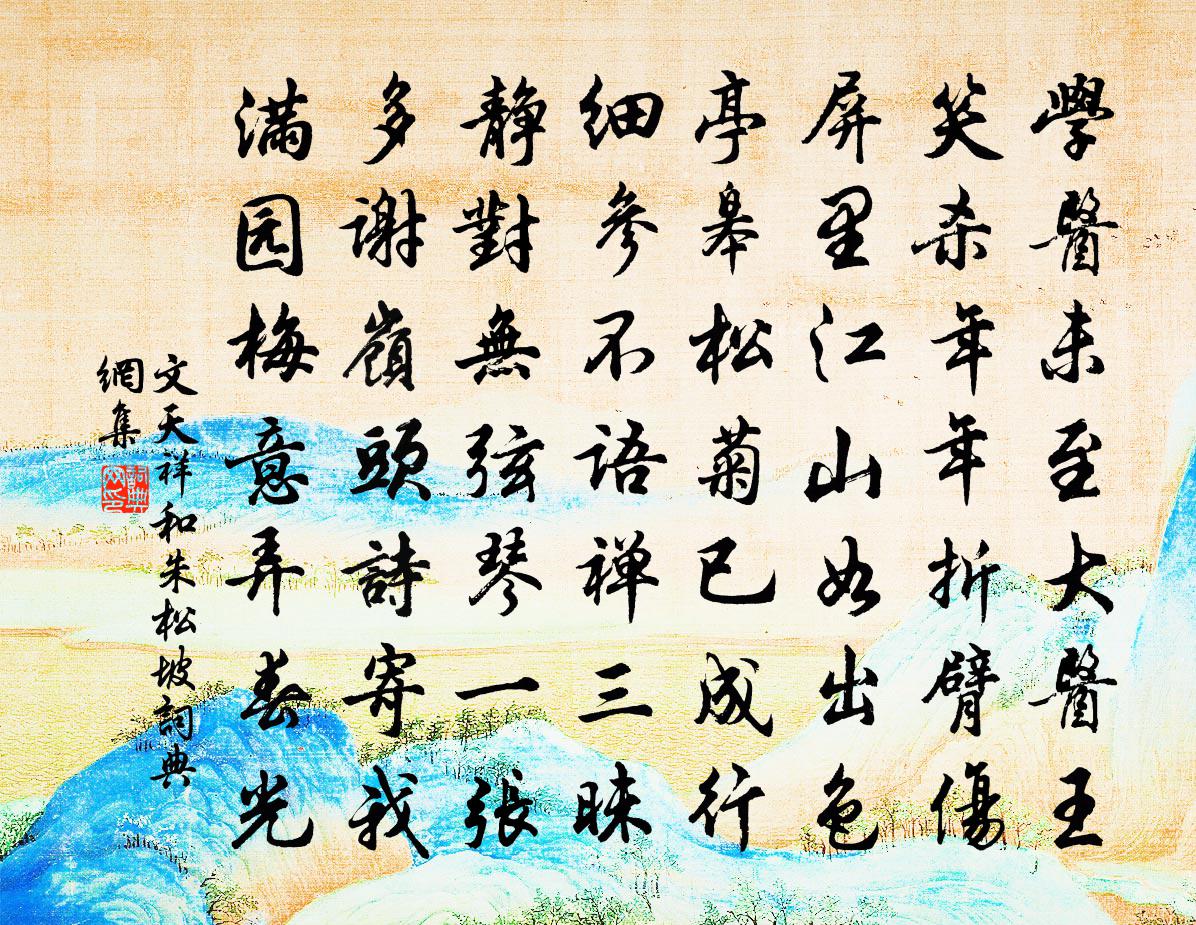 學醫未至大醫王
笑杀年年折臂傷
屏里江山如出色
亭皋松菊已成行
細參不語禅三昧
静對無弦琴一張
多谢嶺頭詩寄我
满园梅意弄春光
文天祥和朱松坡詞典
網集